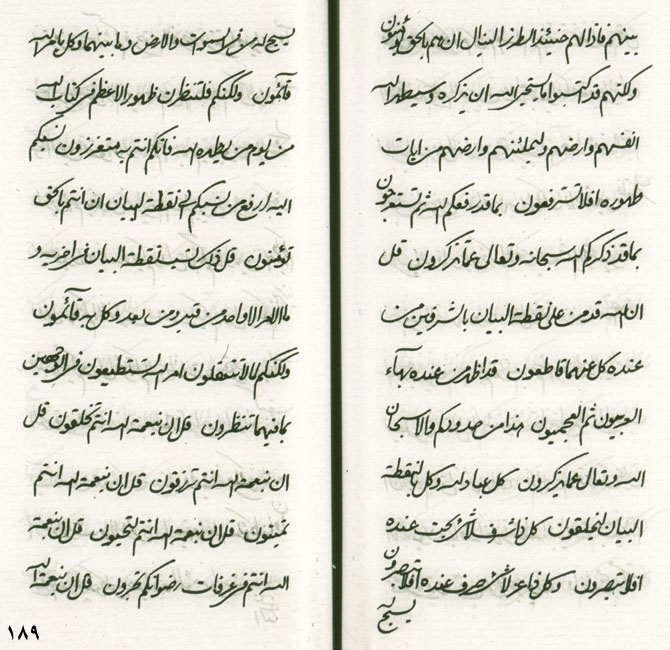 بينهم فاذا لهم حينئذ الطرز البيال ان هم بالحق يؤمنون
ولكنهم قد كتبوا ما يستحيى الله ان يذكره وسيطهر الله
انفسهم وارضهم وليملئنهم وارضهم من ايات
ظهوره افلا تسترفعون بما قد رفعكم الله ثم تستعرجون
بما قد ذكركم الله سبحانه وتعالى عما تذكرون قل
ان الله قد من على نقطة البيان بالشرقين من
عنده كل عنهما قاطعون قد اظهر من عنده بهاء
العربيون ثم العجميون هذا من صدوركم والا سبحان
الله وتعالى عما يذكرون كل عباد لله وكل بالنقطة
البيان ليخلقون كل شىء بحت عنده
افلا تبصرون وكل صرف عنده افلا تبصرون
يسبح
يسبح له من فى السموات والارض وما بينهما وكل بامر الله
قائمون ولكنكم فلتنظرن ظهور الاعظم فى كتاب الله
من يوم من يظهره الله فانكم انتم به متعززون نسبكم
اليه ارفع من نسبكم الى نقطة البيان ان انتم بالحق
تؤمنون قل ذلك نسب نقطة البيان فى اخريه و
ما الامر الا واحد من قبل ومن بعد وكل به قائمون
ولكنكم لما لا تتعقلون امر الله تستطيعون فى الوجهين
بما فيهما تنظرون قل ان بنعمة الله انتم تخلقون قل
ان بنعمة الله انتم ترزقون قل ان بنعمة الله انتم
تميتون قل ان بنعمة الله انتم لتحيون قل ان بنعمة
الله انتم فى غرفات رضوانكم تحبرون قل ان بنعمة الله
١٨٩